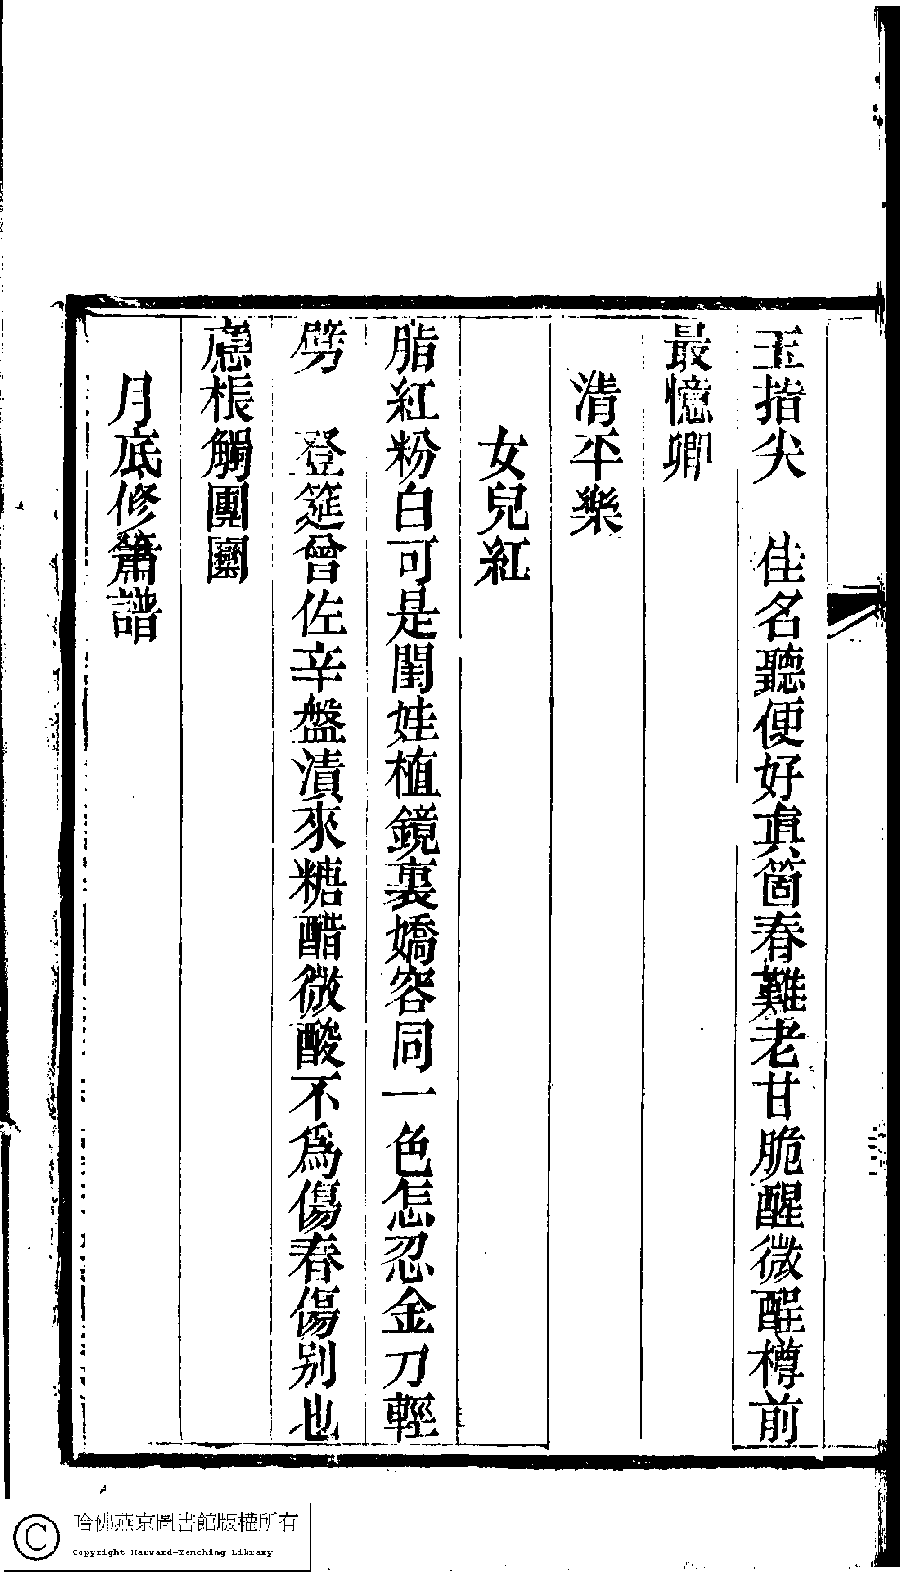 玉指尖　佳名聽便好真箇春難老甘脆醒微酲樽前
最憶卿
清平樂
女兒紅
脂紅粉白可是閨娃植鏡裏嬌容同一色怎忍金刀輕
劈　登筵曾佐辛盤漬來糖醋微酸不爲傷春傷别也
應棖觸團圞
月底修簫譜
哈佛燕京圖書館版權所有
Copyright Harvard-Yenching Library